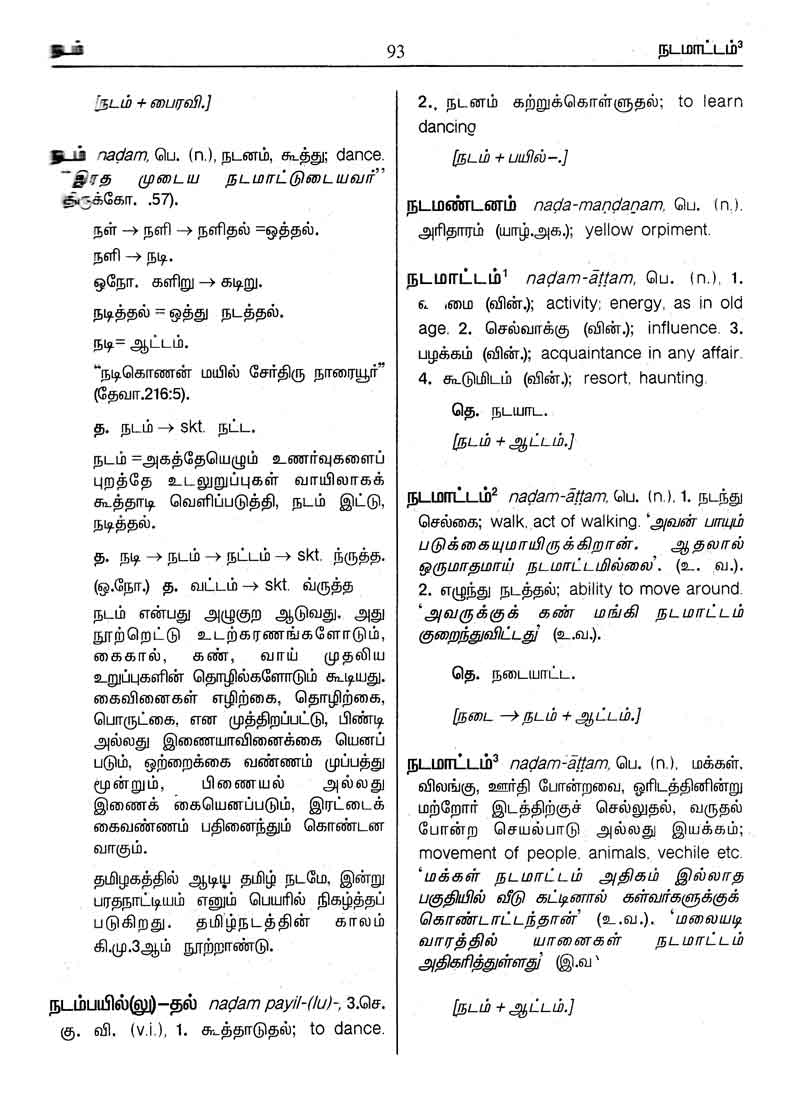 நடம்
93
நடமாட்டம்³
[நடம் + பைரவி.]
நடம் naḍam, பெ. (n.), நடனம், கூத்து; dance.
“இரத முடைய நடமாட்டுடையவர்”
திருக்கோ. .57).
நள் → நளி → நளிதல் =ஒத்தல்.
நளி → நடி.
ஒநோ. களிறு → கடிறு.
நடித்தல் = ஒத்து நடத்தல்.
நடி= ஆட்டம்.
“நடிகொணன் மயில் சேர்திரு நாரையூர்”
(தேவா.216:5).
த. நடம் → skt. நட்ட.
நடம் =அகத்தேயெழும் உணர்வுகளைப்
புறத்தே உடலுறுப்புகள் வாயிலாகக்
கூத்தாடி வெளிப்படுத்தி, நடம் இட்டு,
நடித்தல்.
த. நடி → நடம் → நட்டம் → skt. ந்ருத்த.
(ஒ.நோ.) த. வட்டம் → skt. வ்ருத்த
நடம் என்பது அழுகுற ஆடுவது. அது
நூற்றெட்டு உடற்கரணங்களோடும்,
கைகால், கண், வாய் முதலிய
உறுப்புகளின் தொழில்களோடும் கூடியது.
கைவினைகள் எழிற்கை, தொழிற்கை,
பொருட்கை, என முத்திறப்பட்டு, பிண்டி
அல்லது இணையாவினைக்கை யெனப்
படும், ஒற்றைக்கை வண்ணம் முப்பத்து
மூன்றும், பிணையல் அல்லது
இணைக் கையெனப்படும், இரட்டைக்
கைவண்ணம் பதினைந்தும் கொண்டன
வாகும்.
தமிழகத்தில் ஆடிய தமிழ் நடமே, இன்று
பரதநாட்டியம் எனும் பெயரில் நிகழ்த்தப்
படுகிறது. தமிழ்நடத்தின் காலம்
கி.மு.3ஆம் நூற்றாண்டு.
நடம்பயில்(லு)–தல் naḍam payil-(lu)-, 3.செ.
கு. வி. (v.i.), 1. கூத்தாடுதல்; to dance.
2., நடனம் கற்றுக்கொள்ளுதல்; to learn
dancing
[நடம் + பயில்–.]
நடமண்டனம் naḍa-maṇḍaṉam, பெ. (n.).
அரிதாரம் (யாழ்.அக.); yellow orpiment.
நடமாட்டம்¹ naḍam-āṭṭam, பெ. (n.), 1.
மை (வின்.); activity; energy, as in old
age. 2. செல்வாக்கு (வின்.); influence. 3.
பழக்கம் (வின்.); acquaintance in any affair.
4. கூடுமிடம் (வின்.); resort, haunting.
தெ. நடயாட.
[நடம் + ஆட்டம்.]
நடமாட்டம்² naḍam-āṭṭam, பெ. (n.). 1. நடந்து
செல்கை; walk, act of walking. ‘அவன் பாயும்
படுக்கையுமாயிருக்கிறான். ஆதலால்
ஒருமாதமாய் நடமாட்டமில்லை’. (உ. வ.).
2. எழுந்து நடத்தல்; ability to move around.
‘அவருக்குக் கண் மங்கி நடமாட்டம்
குறைந்துவிட்டது’ (உ.வ.).
தெ. நடையாட்ட.
[நடை → நடம் + ஆட்டம்.]
நடமாட்டம்³ naḍam-āṭṭam, பெ. (n.), மக்கள்,
விலங்கு, ஊர்தி போன்றவை, ஓரிடத்தினின்று
மற்றோர் இடத்திற்குச் செல்லுதல், வருதல்
போன்ற செயல்பாடு அல்லது இயக்கம்;
movement of people, animals, vechile etc.
‘மக்கள் நடமாட்டம் அதிகம் இல்லாத
பகுதியில் வீடு கட்டினால் கள்வர்களுக்குக்
கொண்டாட்டந்தான்’ (உ.வ.). ‘மலையடி
வாரத்தில் யானைகள் நடமாட்டம்
அதிகரித்துள்ளது’ (இ.வ
[நடம் + ஆட்டம்.]